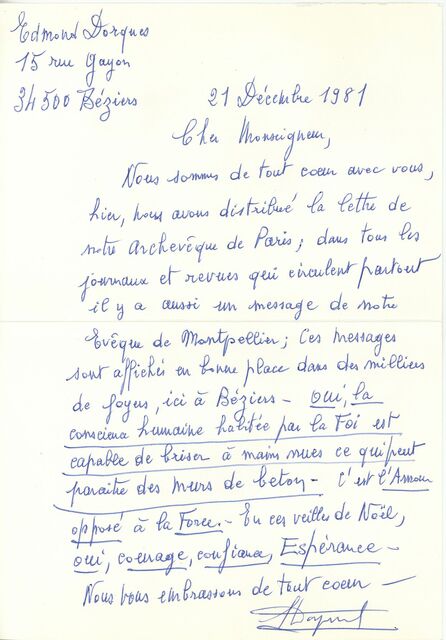 Edmond Dorques
15 rue Gayon
34500 Béziers
21 Décembre 1981
Cher Monseigneur,
Nous sommes de tout coeur avec vous,
hier, nous avons distribué la lettre de
notre Archevêque de Paris; dans tous les
journaux et revues qui circulent partout
il y a aussi un message de notre
Evêque de Montpellier; Ces messages
sont affichés en bonne place dans des milliers
de foyers, ici à Béziers - oui, la
conscience humaine habitée par la Foi est
capable de briser à mains nues ce qui peut
paraître des murs de beton - C'est l'Amour
opposé à la Force. - En ces veilles de Noël,
oui, courage, confiance, Espérance -
Nous vous embrassons de tout coeur -